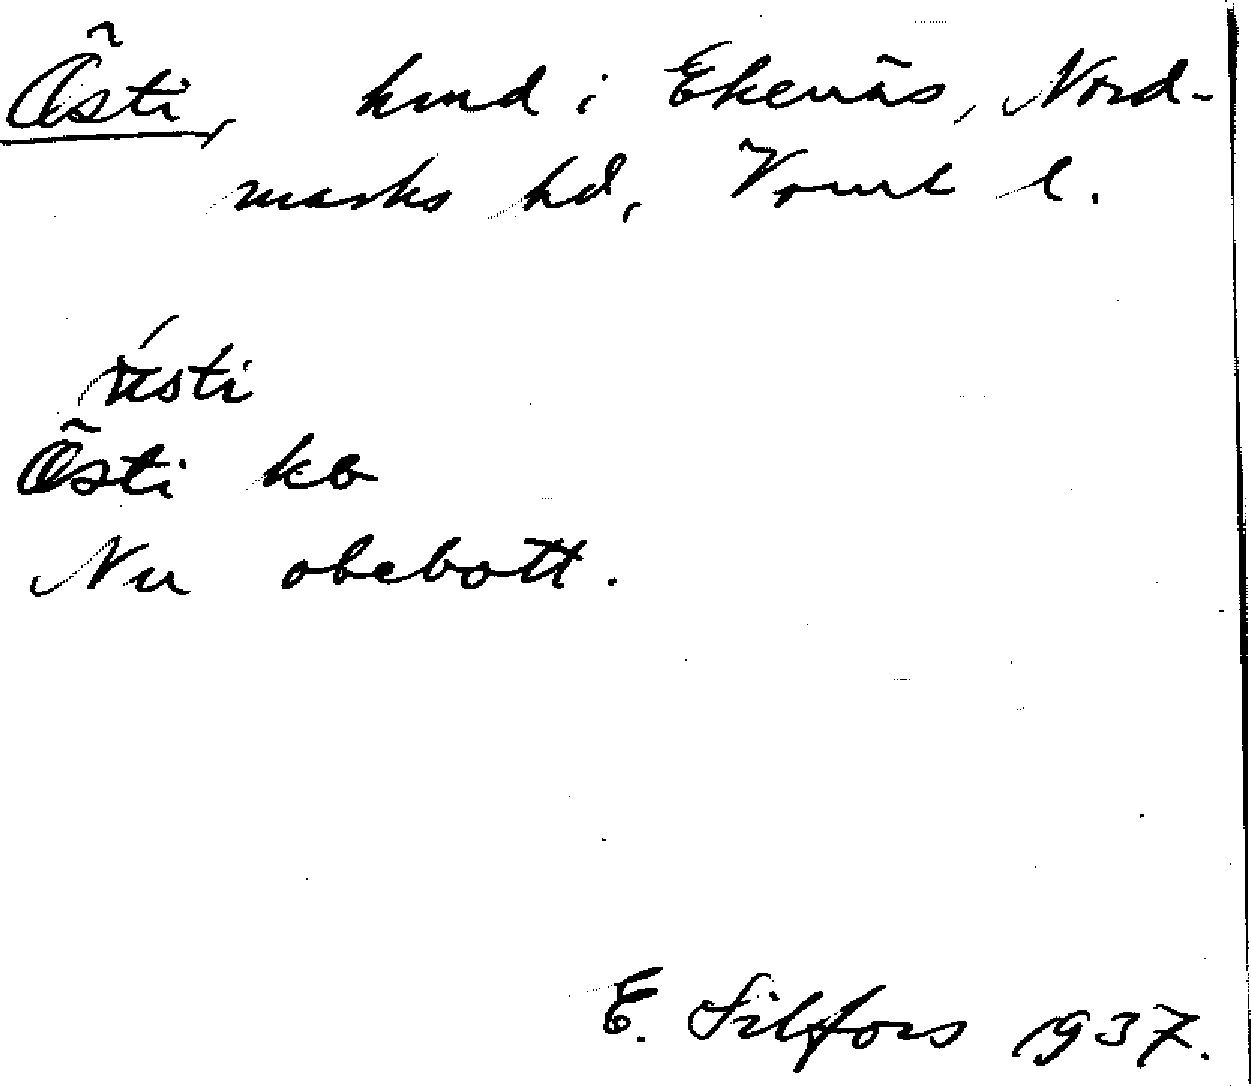 Östi, hmd i Ekenäs, Nord-
marks hd, Vrml l.
Östi ko
Nu obebott.
E. Silfors 1937.